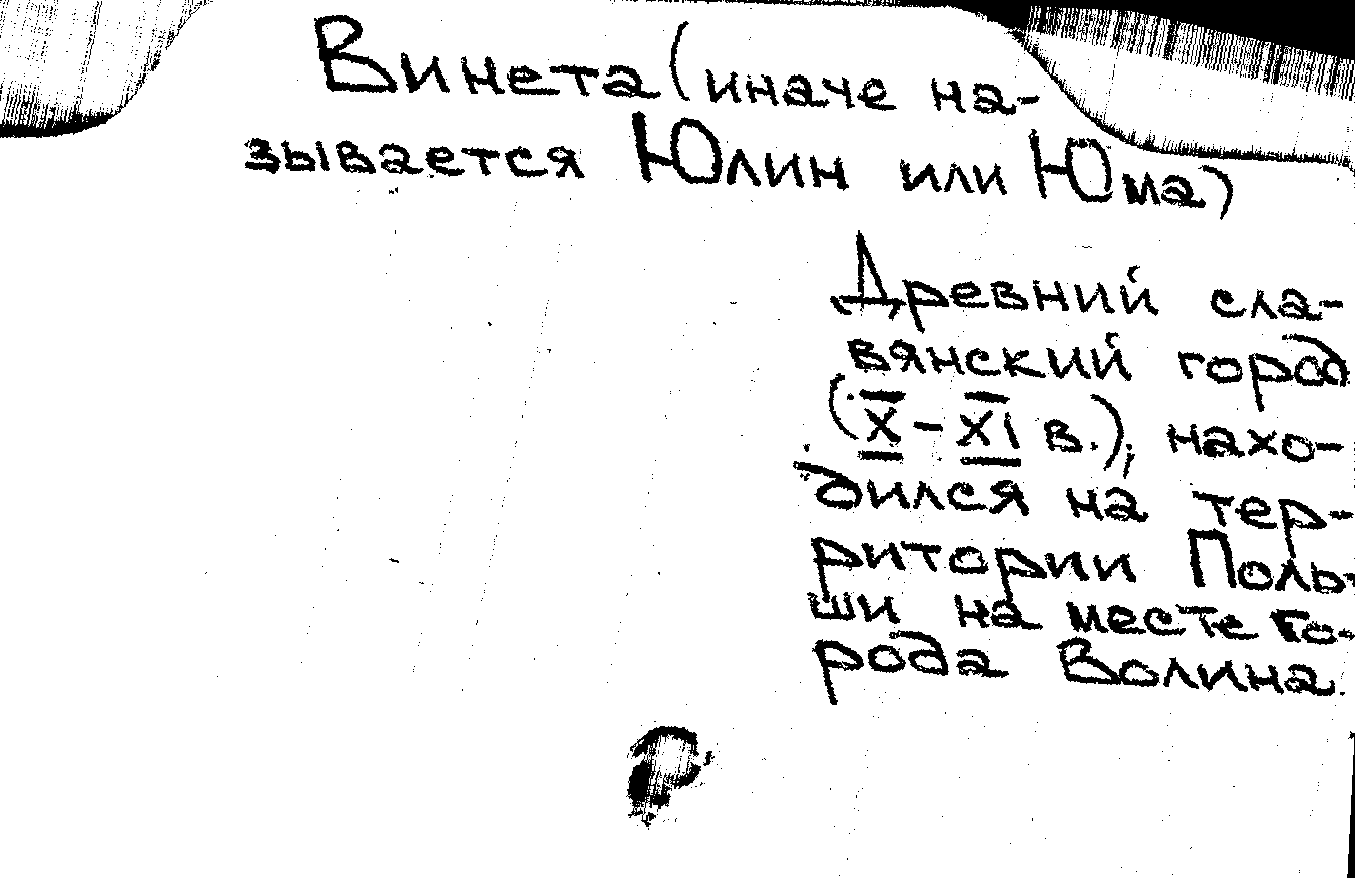 Винета (иначе на-
зывается Юлин или Юма)
Древний сла-
вянский город
(X - XI в.), нахо-
дился на тер-
ритории Поль-
ши на месте го-
рода Волина.